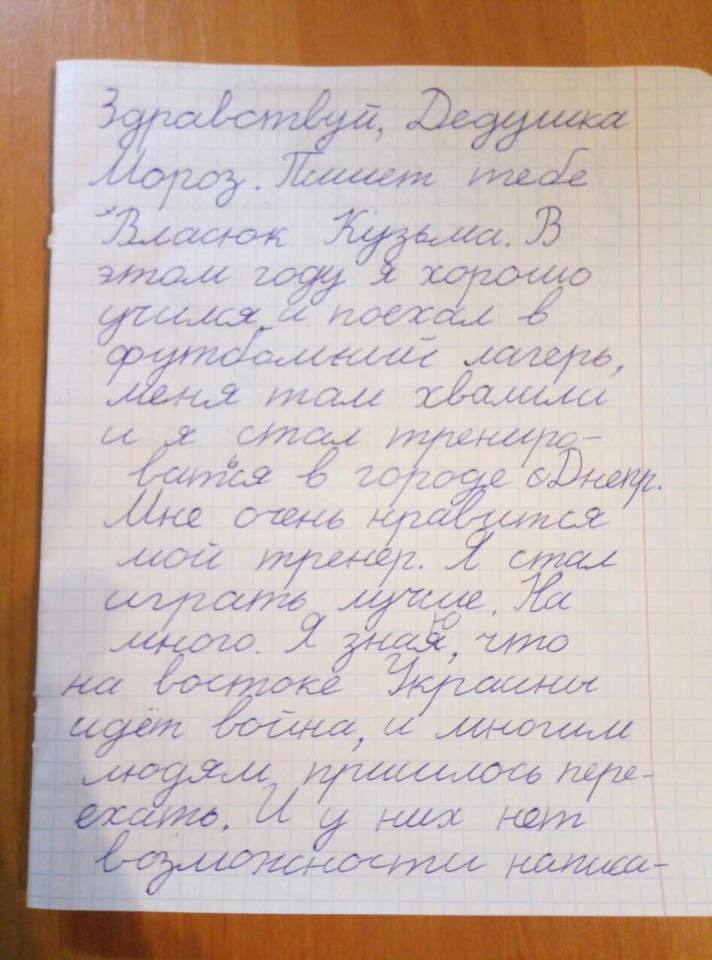 Здравствуй, Дедушка
Мороз. Пишет тебе
Власюк Кузьма. В
этом году я хорошо
учился и поехал в
футбольний лагерь,
меня там хвалили
и я стал трениро-
ваться в городе Днепр.
Мне очень нравится
мой тренер. Я стал
играть лучше. На
много. Я знаю, что
на востоке Украины
идёт война, и многим
людям пришлось пере-
ехать. И у них нет
возможности написа-